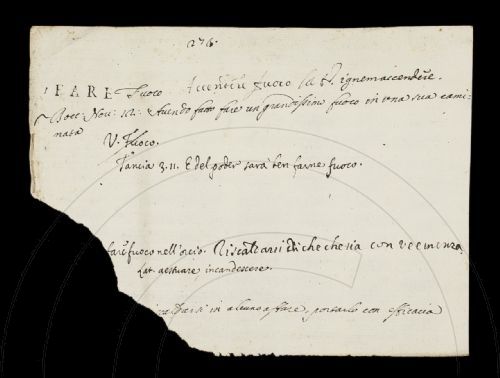 276.
FARE Fuoco Accendere fuoco Lat. ignem accendere.
Bocc. Nov: 12. Avendo fatto fare un grandissimo fuoco in una sua cami-
nata
V. Fuoco.
Tancia 3. 11. E del poder sarà ben farne fuoco.
fare fuoco nell'orcio. Riscaldarsi di che che sia con veemenza
Lat. aestuare incandescere.
in alcuno affare, portarlo con efficacia